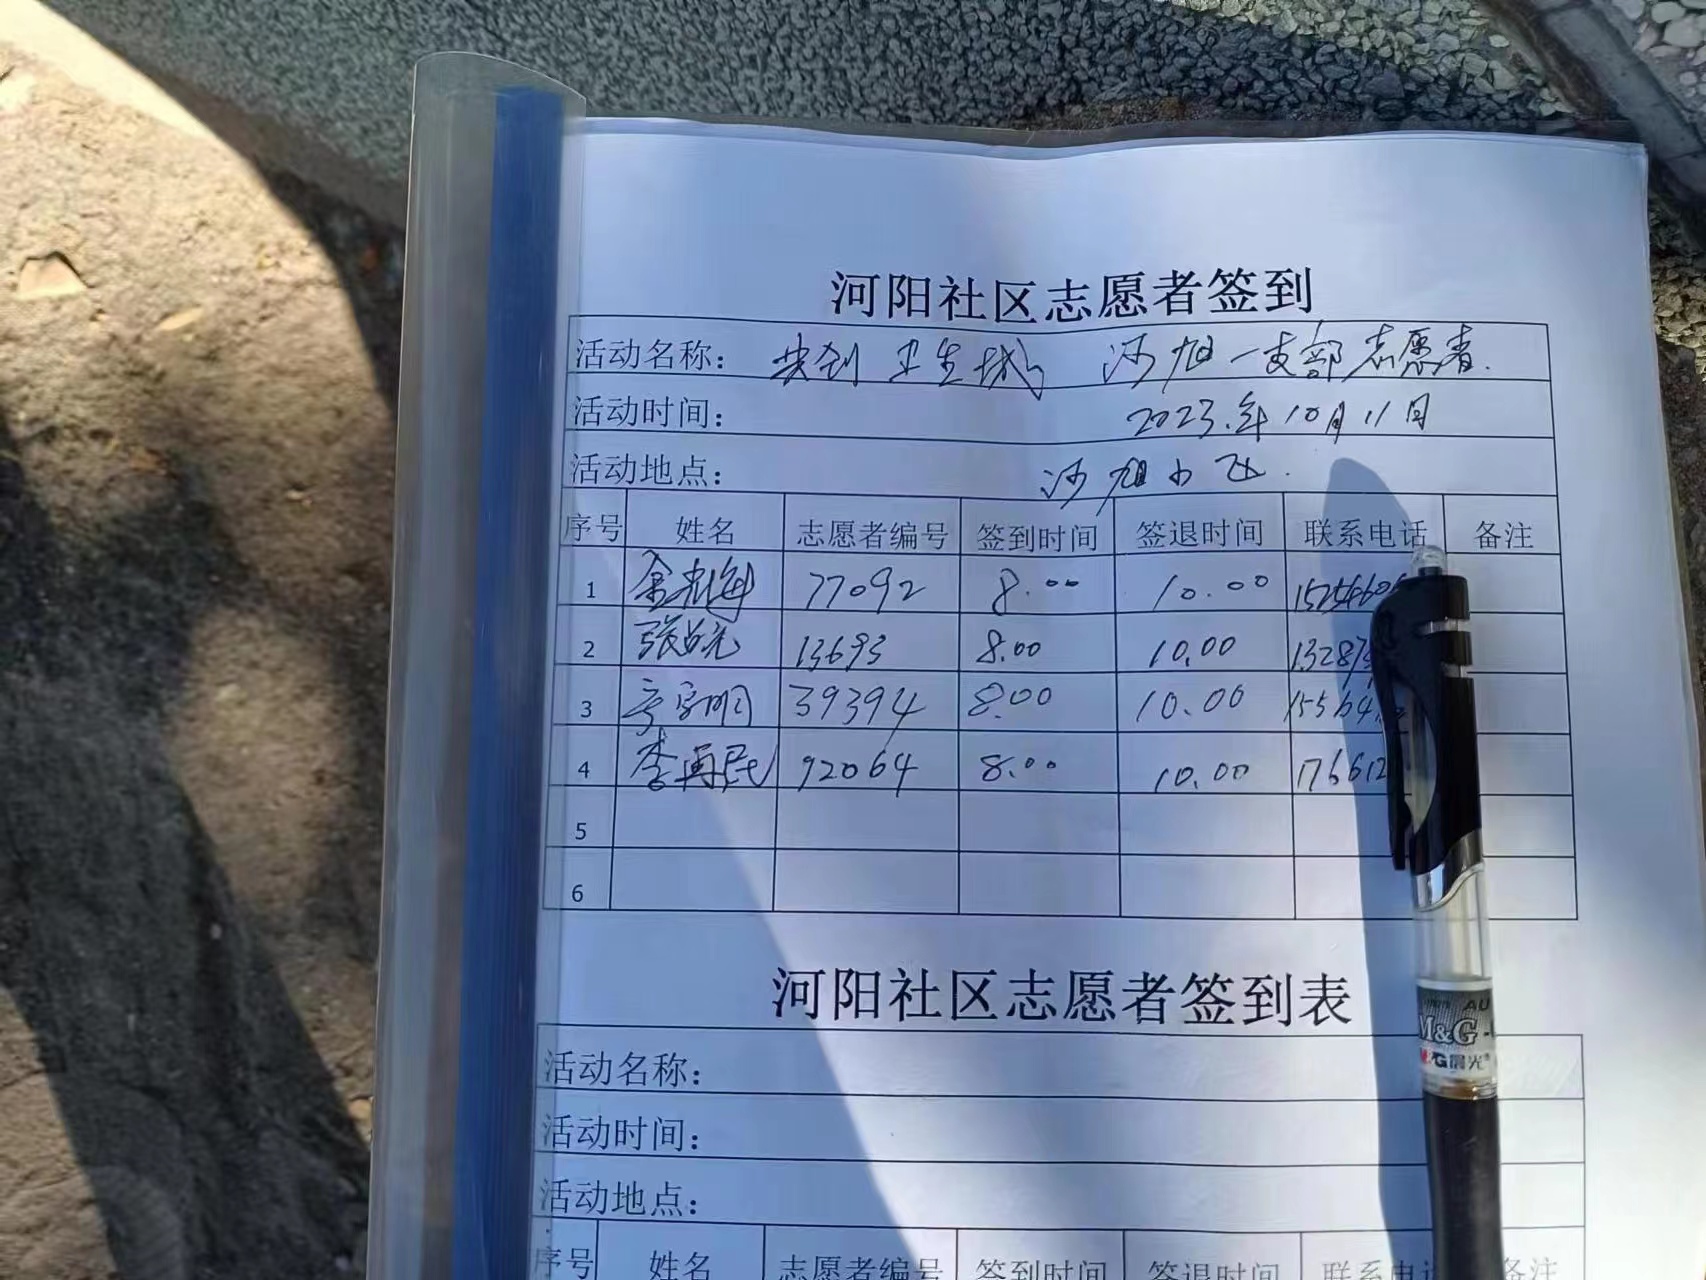 河阳社区志愿者签到
活动名称： 共创卫生城 河旭一支部志愿者.
活动时间： 2023.年10月11日
活动地点： 河旭小区.
序号 姓名 志愿者编号 签到时间 签退时间 联系电话 备注
1 77092 8.00 10.00
2 13693 8.00 10.00 13287
3 39394 8.00 10.00 15564
4 李再民 92064 8.00 10.00 176612
5
6
河阳社区志愿者签到表
活动名称：
活动时间：
活动地点：
序号 姓名 志愿者编号 签到时间 签退时间 联系电 备注
AU
M&G
M&G晨光